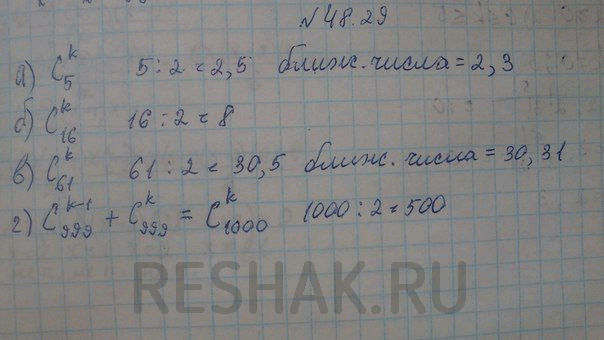 №48.29
а) C₅ᵏ 5:2=2,5 ближ. числа = 2, 3
б) C₁₆ᵏ 16:2=8
в) C₆₁ᵏ 61:2=30,5 ближ. числа = 30, 31
г) C₉₉₉ᵏ⁻¹ + C₉₉₉ᵏ = C₁₀₀₀ᵏ 1000:2=500
RESHAK.RU